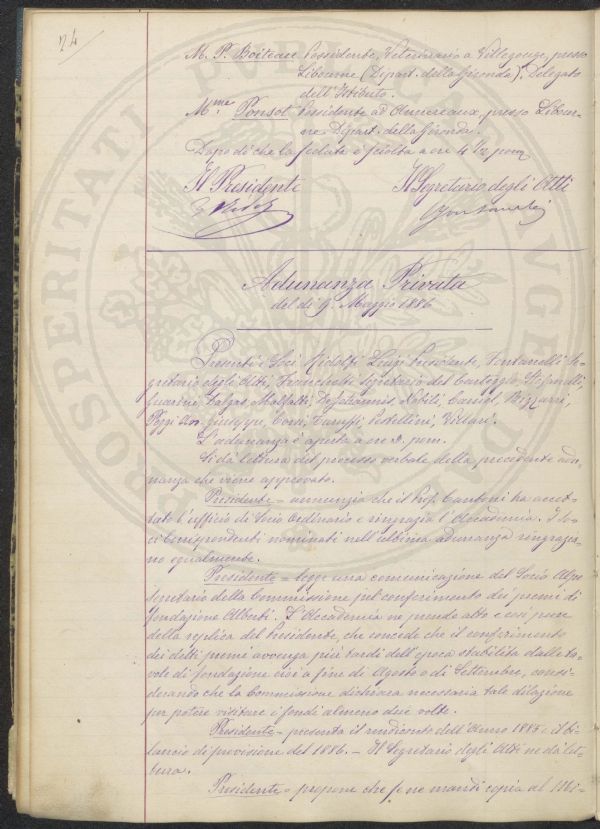 74
M. P. Boiteau Possidente, Veterinario a Villegouge, presso
Libourne (Dipart. della Gironda). Delegato
dell'Istituto.
M.me Ponsot Possidente ad Annereaux, presso Libour-
ne Dipart. della Gironda.
Dopo di che la seduta è sciolta a ore 4 1/2 pom
Il Presidente
Il Segretario degli Atti
Adunanza Privata
del dì 9 Maggio 1886
Presenti i Soci Ridolfi Luigi Presidente, Fontanelli Se-
gretario degli Atti, Franceschi Segretario del Carteggio, Stefanelli,
Guarini, Malfatti, De Johannis, Nobili, Caruel, Bizzarri,
Pozzi Giuseppe, Corsi, Pestellini, Villari.
L'adunanza è aperta a ore pom.
Si dà lettura del processo verbale della precedente adu-
nanza che viene approvato.
Presidente = annunzia che il Prof. Cantoni ha accet-
tato l'ufficio di Socio Ordinario e ringrazia l'Accademia. I So-
ci Corrispondenti nominati nell'ultima adunanza ringrazia-
no egualmente.
Presidente = legge una comunicazione del Socio Alpe
segretario della Commissione pel conferimento dei premi di
fondazione Alberti. L'Accademia ne prende atto e così pure
della replica del Presidente, che concede che il conferimento
dei detti premi avvenga più tardi dell'epoca stabilita dalle ta-
vole di fondazione cioè a fine di Agosto o di Settembre, consi-
derando che la Commissione dichiara necessaria tale dilazione
per potere visitare i fondi almeno due volte.
Presidente = presenta il rendiconto dell'Anno 1885 e il bi-
lancio di previsione del 1886. – Il Segretario degli Atti ne dà let-
tura.
Presidente = propone che se ne mandi copia al Mi-
PROSPERITATI PUBLICAE AUGENDAE